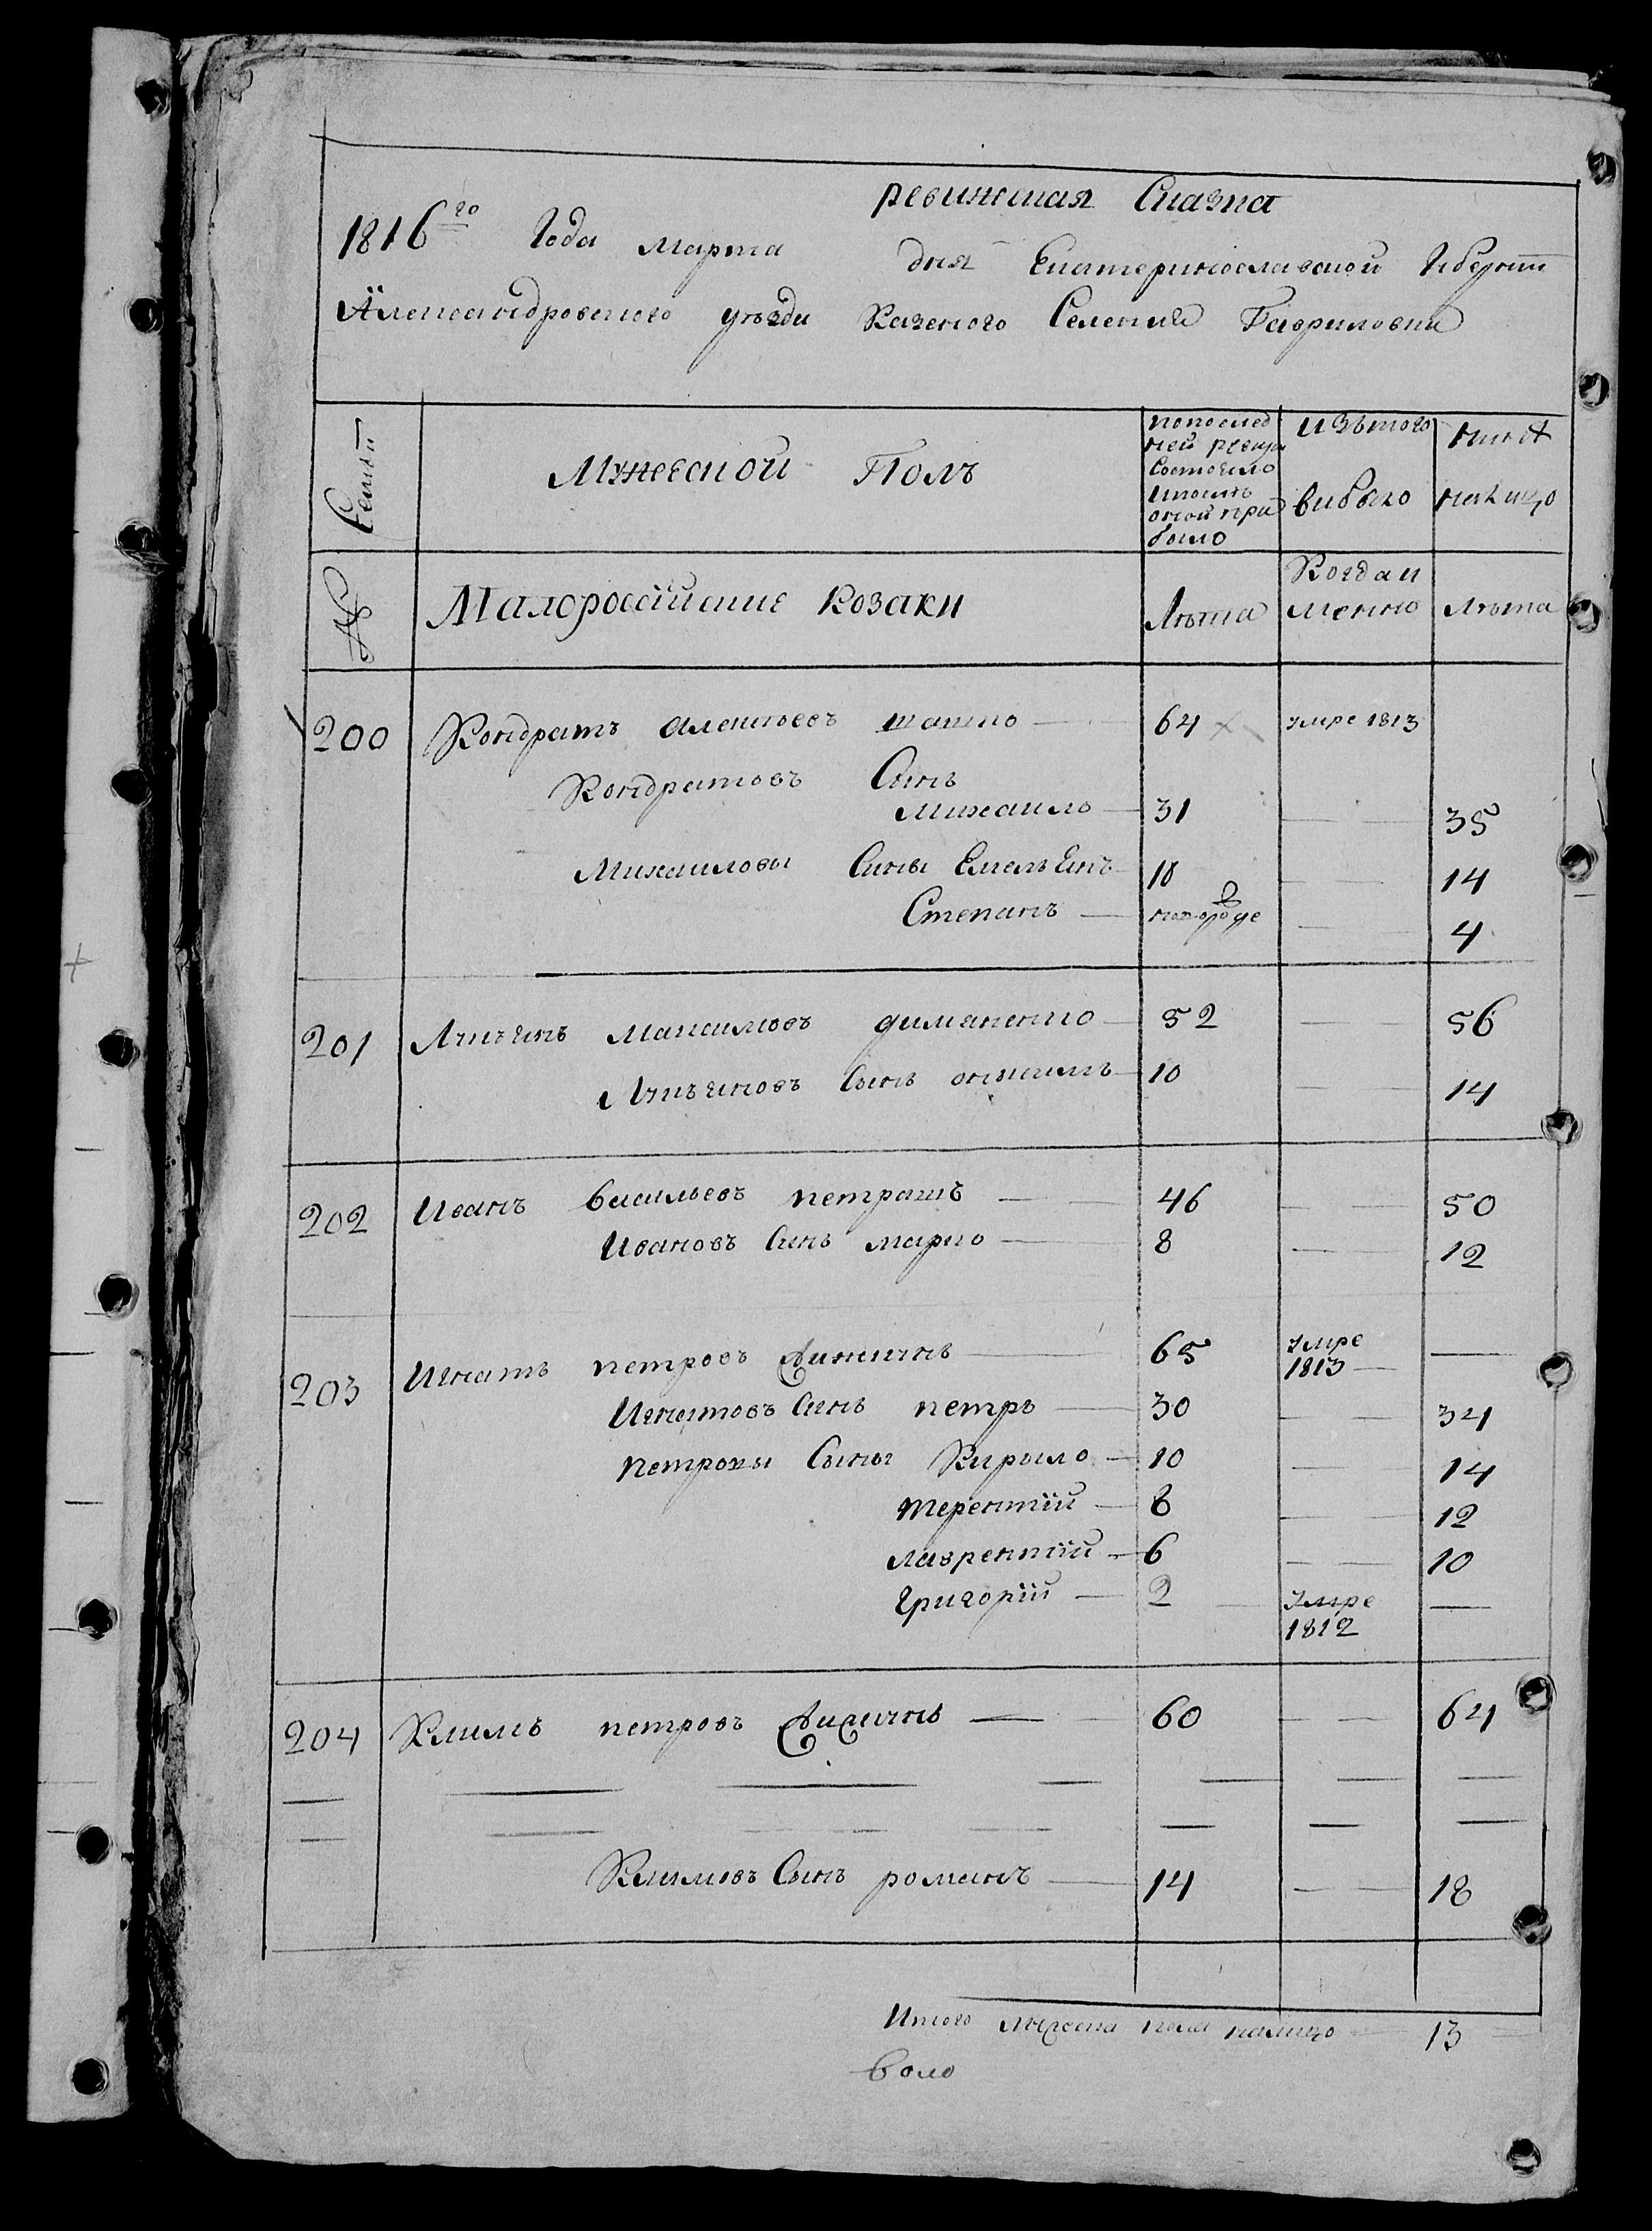 ревижская Сказка
1816го Года марта дня Екатеринославской Губернии
Александровского уезда Казеного Селения Гавриловки
Семьи
Мужеской Полъ
попослед
ней ревизи
Состояло
ипослъ
оной при
было
изътого
выбыло
ныне
налицо
№
Малороссійские Козаки
Лъта
Когда и
менно
Лъта
200 Кондратъ Алексъевъ 64 умре 1813
Кондратовъ Сынъ
Михаило 31 — 35
Михаиловы Сины Емельянъ 10 — 14
Степанъ — 4
201 Лукъянъ Максимовъ 52 — 56
Лукъяновъ Сынъ 10 — 14
202 Иванъ Васильевъ петрашъ — 46 — 50
Ивановъ Синъ марко — 8 — 12
203 Игнатъ петровъ — 65 умре 1813 —
Игнатовъ Синъ петръ — 30 — 34
петровы Сыны Кирыло — 10 — 14
терентій — 8 — 12
лаврентій — 6 — 10
григорій — 2 — умре 1812 —
204 Климъ петровъ — 60 — 64
Климовъ Сынъ романъ — 14 — 18
Итого мужеска пола налицо — 13